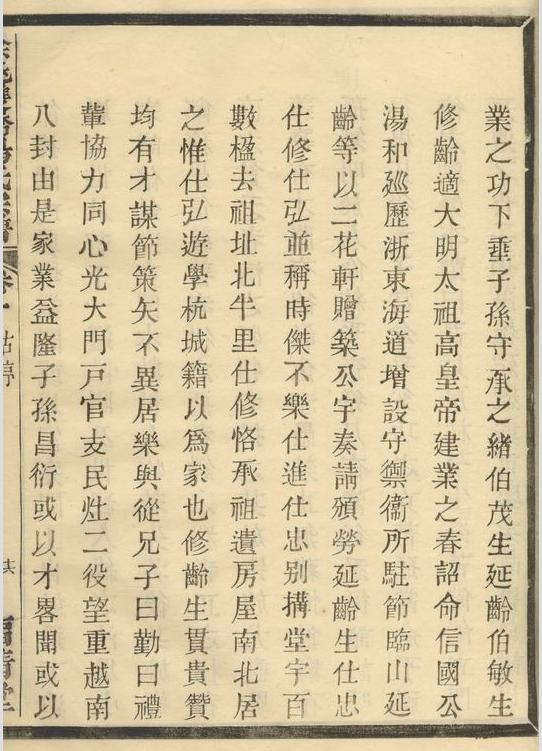 業之功下垂子孫守承之緒伯茂生延齡伯敏生
修齡適大明太祖高皇帝建業之春詔命信國公
湯和廵歷浙東海道增設守禦衞所駐節臨山延
齡等以二花軒贈築公宇奏請頒勞延齡生仕忠
仕修仕弘並稱時傑不樂仕進仕忠别搆堂宇百
數楹去祖址北半里仕修恪承祖遺房屋南北居
之惟仕弘遊學杭城籍以爲家也修齡生貫貴贊
均有才謀節策矢不異居樂與從兄子曰勤曰禮
軰協力同心光大門戸官支民灶二役望重越南
八封由是家業益隆子孫昌衍或以才畧聞或以